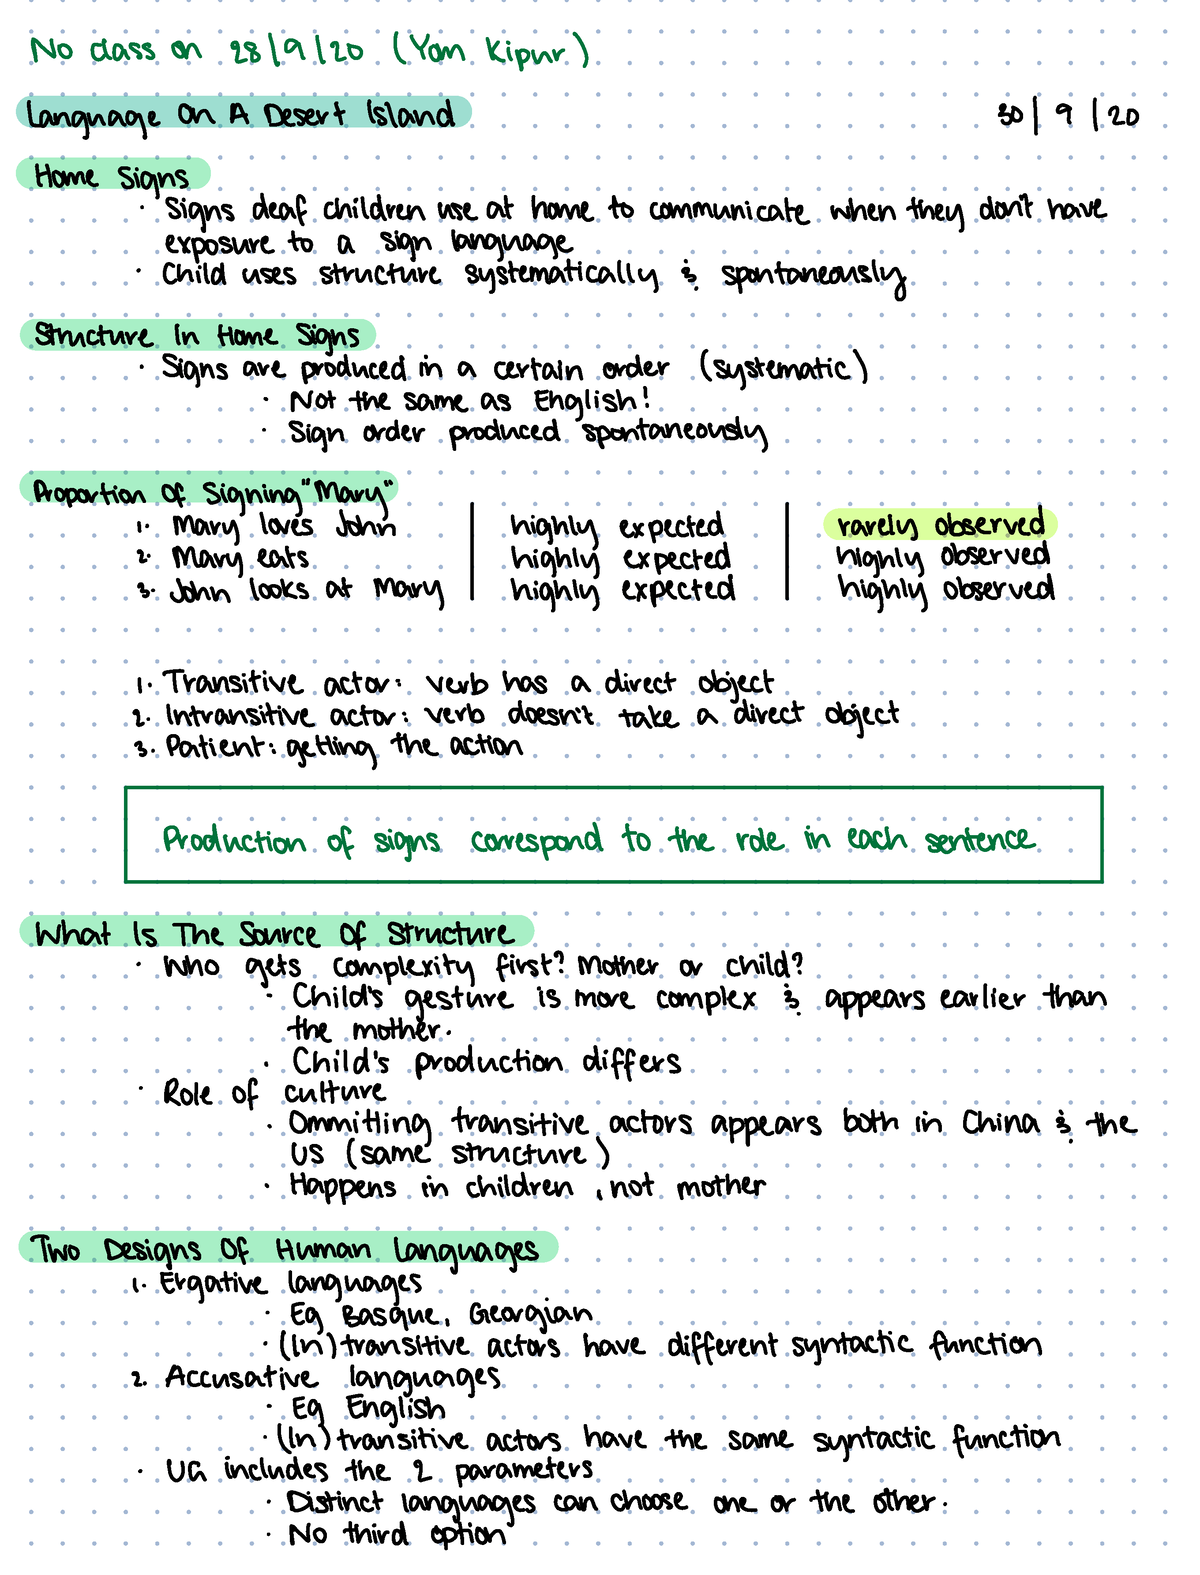 No class on 28/9/20 (Yom Kipur)
Language On A Desert Island 30/9/20
Home Signs
· Signs deaf children use at home to communicate when they don't have
exposure to a sign language
· Child uses structure systematically & spontaneously
Structure In Home Signs
· Signs are produced in a certain order (systematic)
· Not the same as English!
· Sign order produced spontaneously
Proportion Of Signing "Mary"
1. Mary loves John | highly expected | rarely observed
2. Mary eats | highly expected | highly observed
3. John looks at Mary | highly expected | highly observed
1. Transitive actor: verb has a direct object
2. Intransitive actor: verb doesn't take a direct object
3. Patient: getting the action
Production of signs correspond to the role in each sentence
What Is The Source Of Structure
· Who gets complexity first? Mother or child?
· Child's gesture is more complex & appears earlier than
the mother.
· Child's production differs
· Role of culture
· Ommitting transitive actors appears both in China & the
US (same structure)
· Happens in children, not mother
Two Designs Of Human Languages
1. Ergative languages
· Eg Basque, Georgian
· (In)transitive actors have different syntactic function
2. Accusative languages
· Eg English
· (In)transitive actors have the same syntactic function
· UG includes the 2 parameters
· Distinct languages can choose one or the other.
· No third option